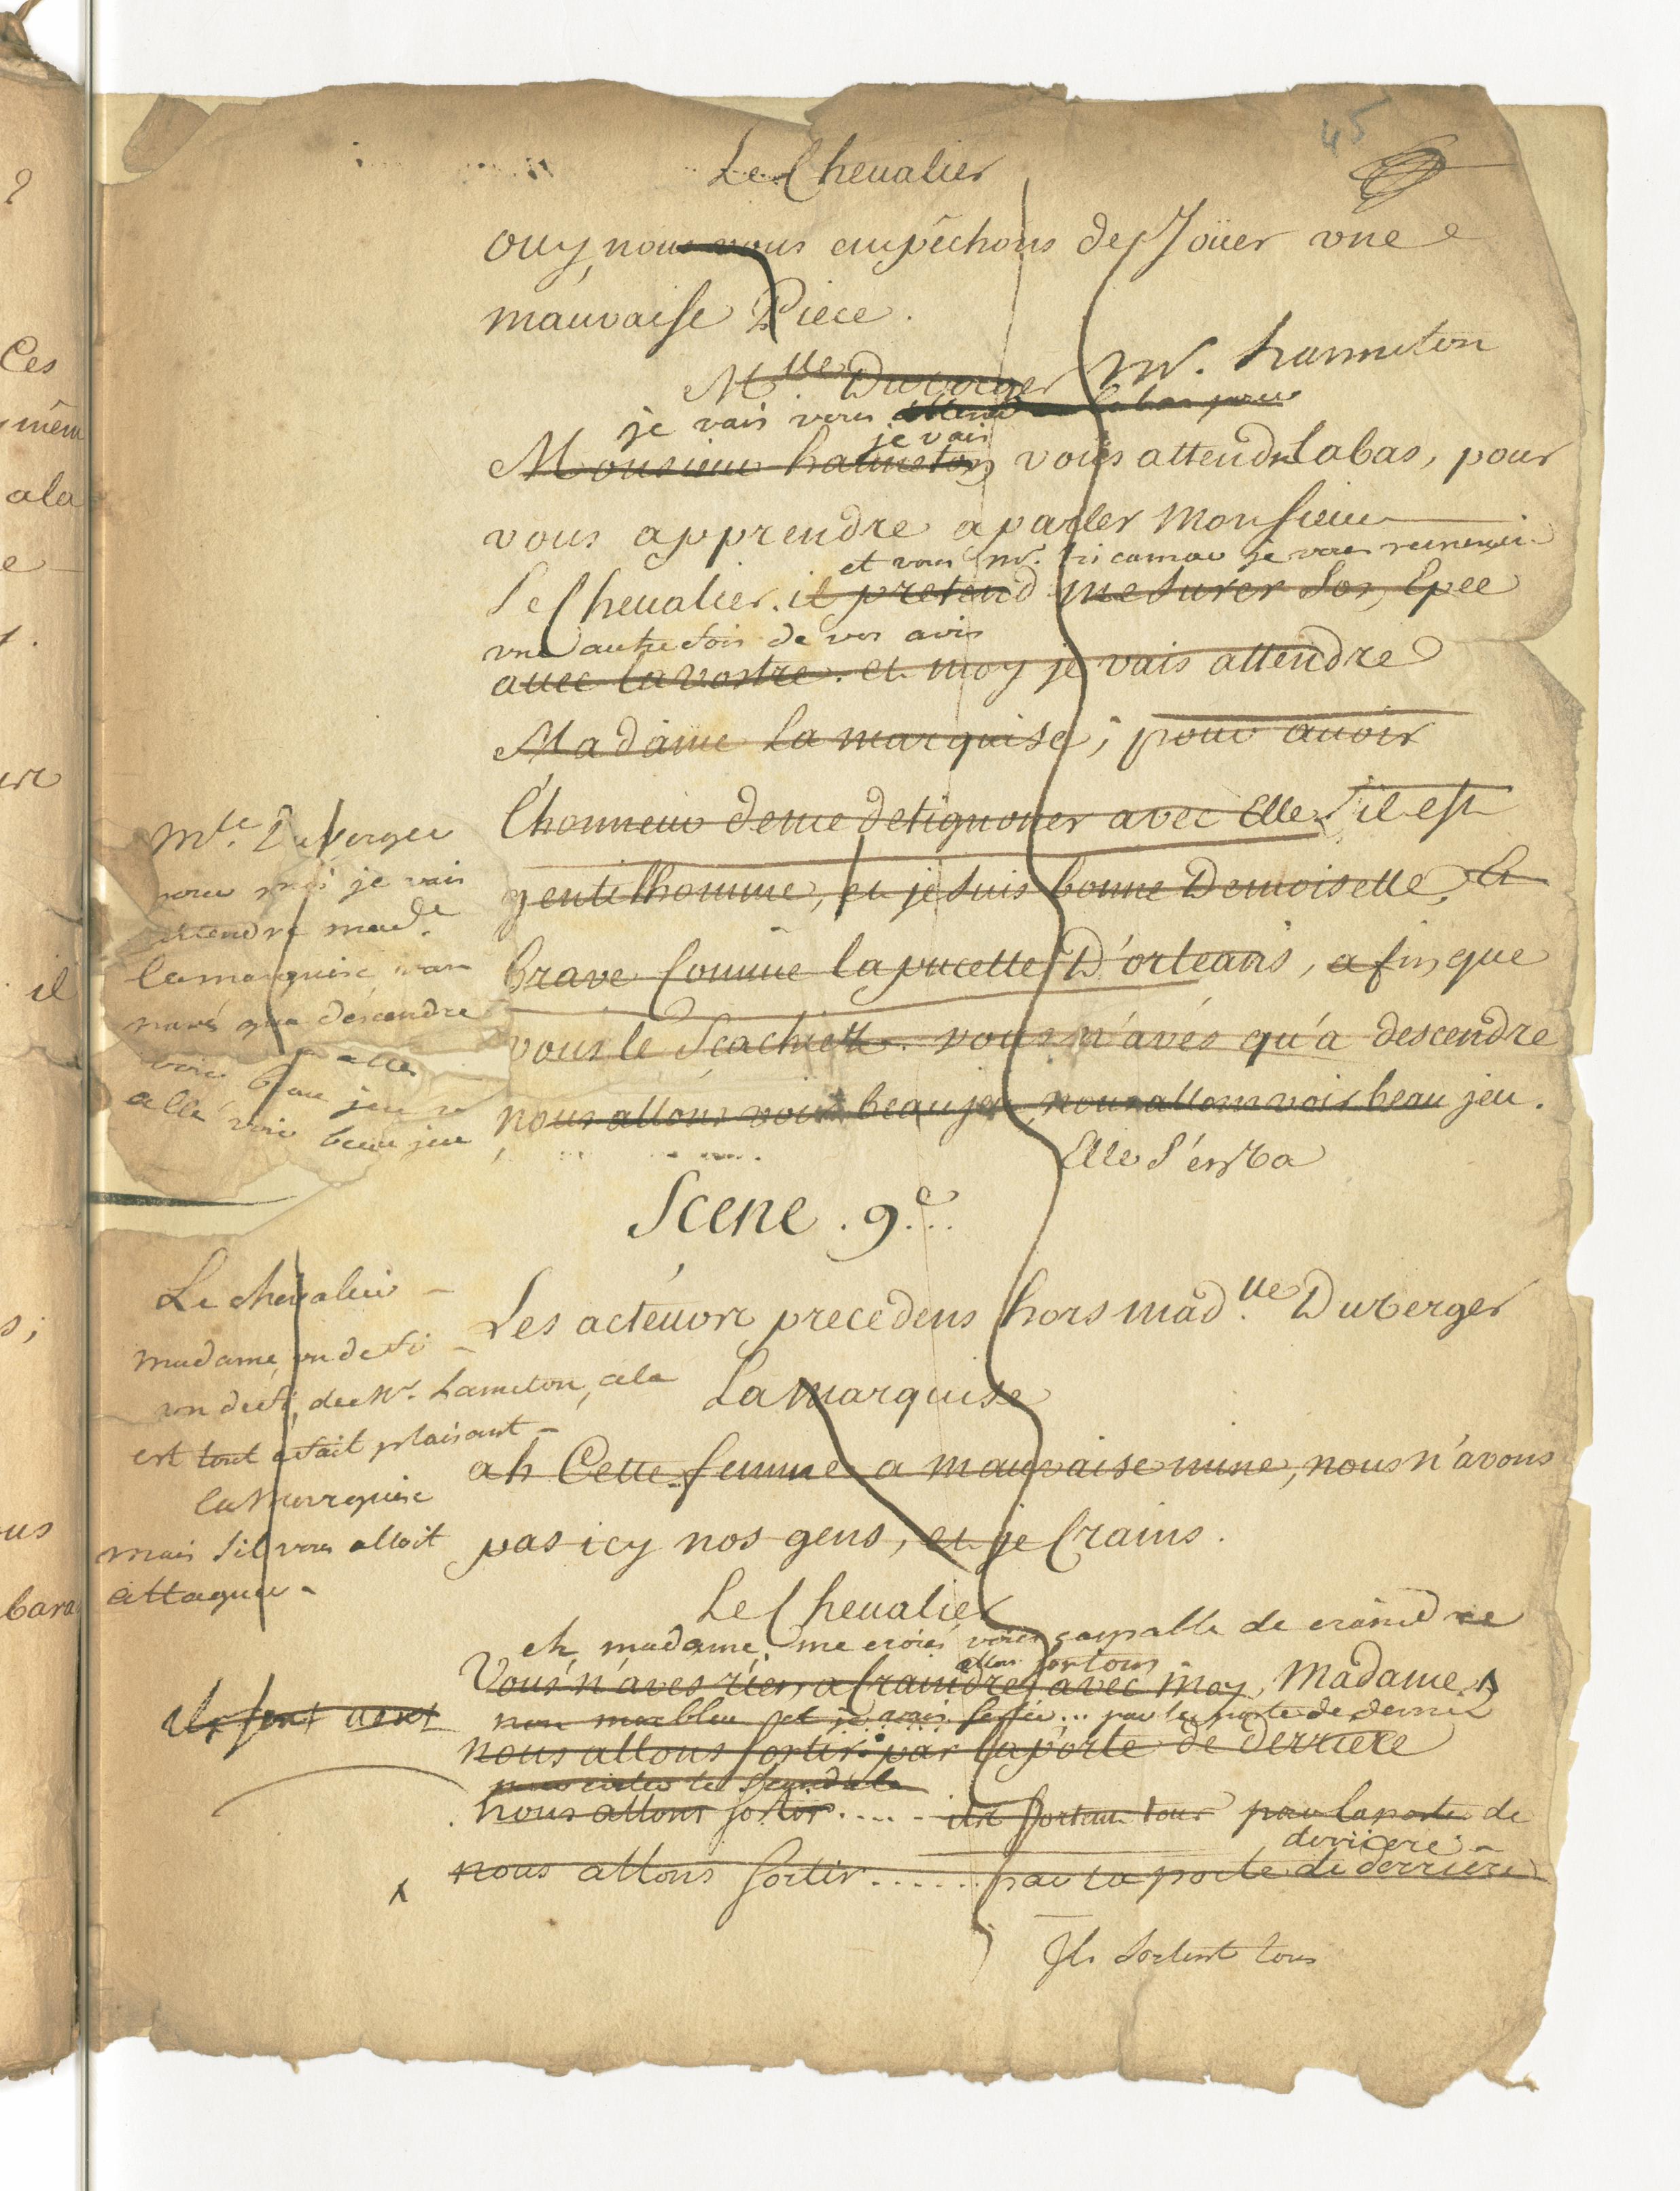 45
Le Cheualier
ouy, nous vous empêchons de Joüer vne
mauvaise Piece.
Mlle Duverger Mr. hanneton
je vais vous attend labas pour
je vais
Monsieur hanneton vous attendr labas, pour
vous apprendre a parler Monsieur
et vous mr. tricamac je vous remercie
Le Cheualier. il pretend mesurer Son Epee
vne autre fois de vos avis
auec la vostre. et moy je vais attendre
Madame La marquise, pour auoir
l'honneur de me detignoner avec Elle. s'il est
gentilhomme, et je suis bonne Demoiselle, Et
brave Comme la pucelle D'orleans, afin que
vous le Scachiez. vous n'avés qu'a descendre
nous allons voir beau jeu, nous allons voir beau jeu.
Elle S'en va
Mlle. Duverger
pour moi je vais
attendre made.
la marquise, vous
n'avés qu'a descendre
alle
voir beau jeu
allé voir beau jeu
Scene . 9e...
Les acteurs precedens hors mad.lle Duverger
La marquise
ah Cette femme a mauvaise mine, nous n'avons
pas icy nos gens, et je Crains.
Le chevalier
madame, un defi
un defi, de Mr. hanneton, cela
est tout afait plaisant
la Marquise
mais s'il vous alloit
attaquer
Le Cheualier
eh, madame, me croiés vous capable de craindre
allons sortons
Vous n'aves rien a Craindre avec moy, Madame
non morbleu et je vais ... par la porte de derriere
nous allons Sortir par la porte de derriere
pour eviter le scandale
nous allons sortir..... ils sortent tous par la porte de
derriere
x nous allons Sortir...... par la porte de derriere
Ils sortent tous